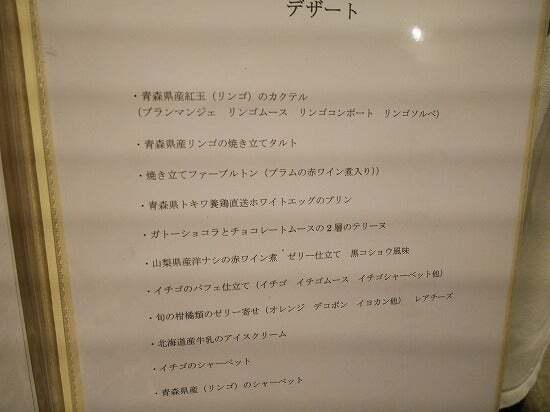 デザート
・青森県産紅玉(リンゴ)のカクテル
(ブランマンジェ リンゴムース リンゴコンポート リンゴソルベ)
・青森県産リンゴの焼き立てタルト
・焼き立てファーブルトン(プラムの赤ワイン煮入り))
・青森県トキワ養鶏直送ホワイトエッグのプリン
・ガトーショコラとチョコレートムースの2層のテリーヌ
・山梨県産洋ナシの赤ワイン煮 ゼリー仕立て 黒コショウ風味
・イチゴのパフェ仕立て(イチゴ イチゴムース イチゴシャーベット他)
・旬の柑橘類のゼリー寄せ(オレンジ デコポン イヨカン他) レアチーズ
・北海道産牛乳のアイスクリーム
・イチゴのシャーベット
・青森県産(リンゴ)のシャーベット